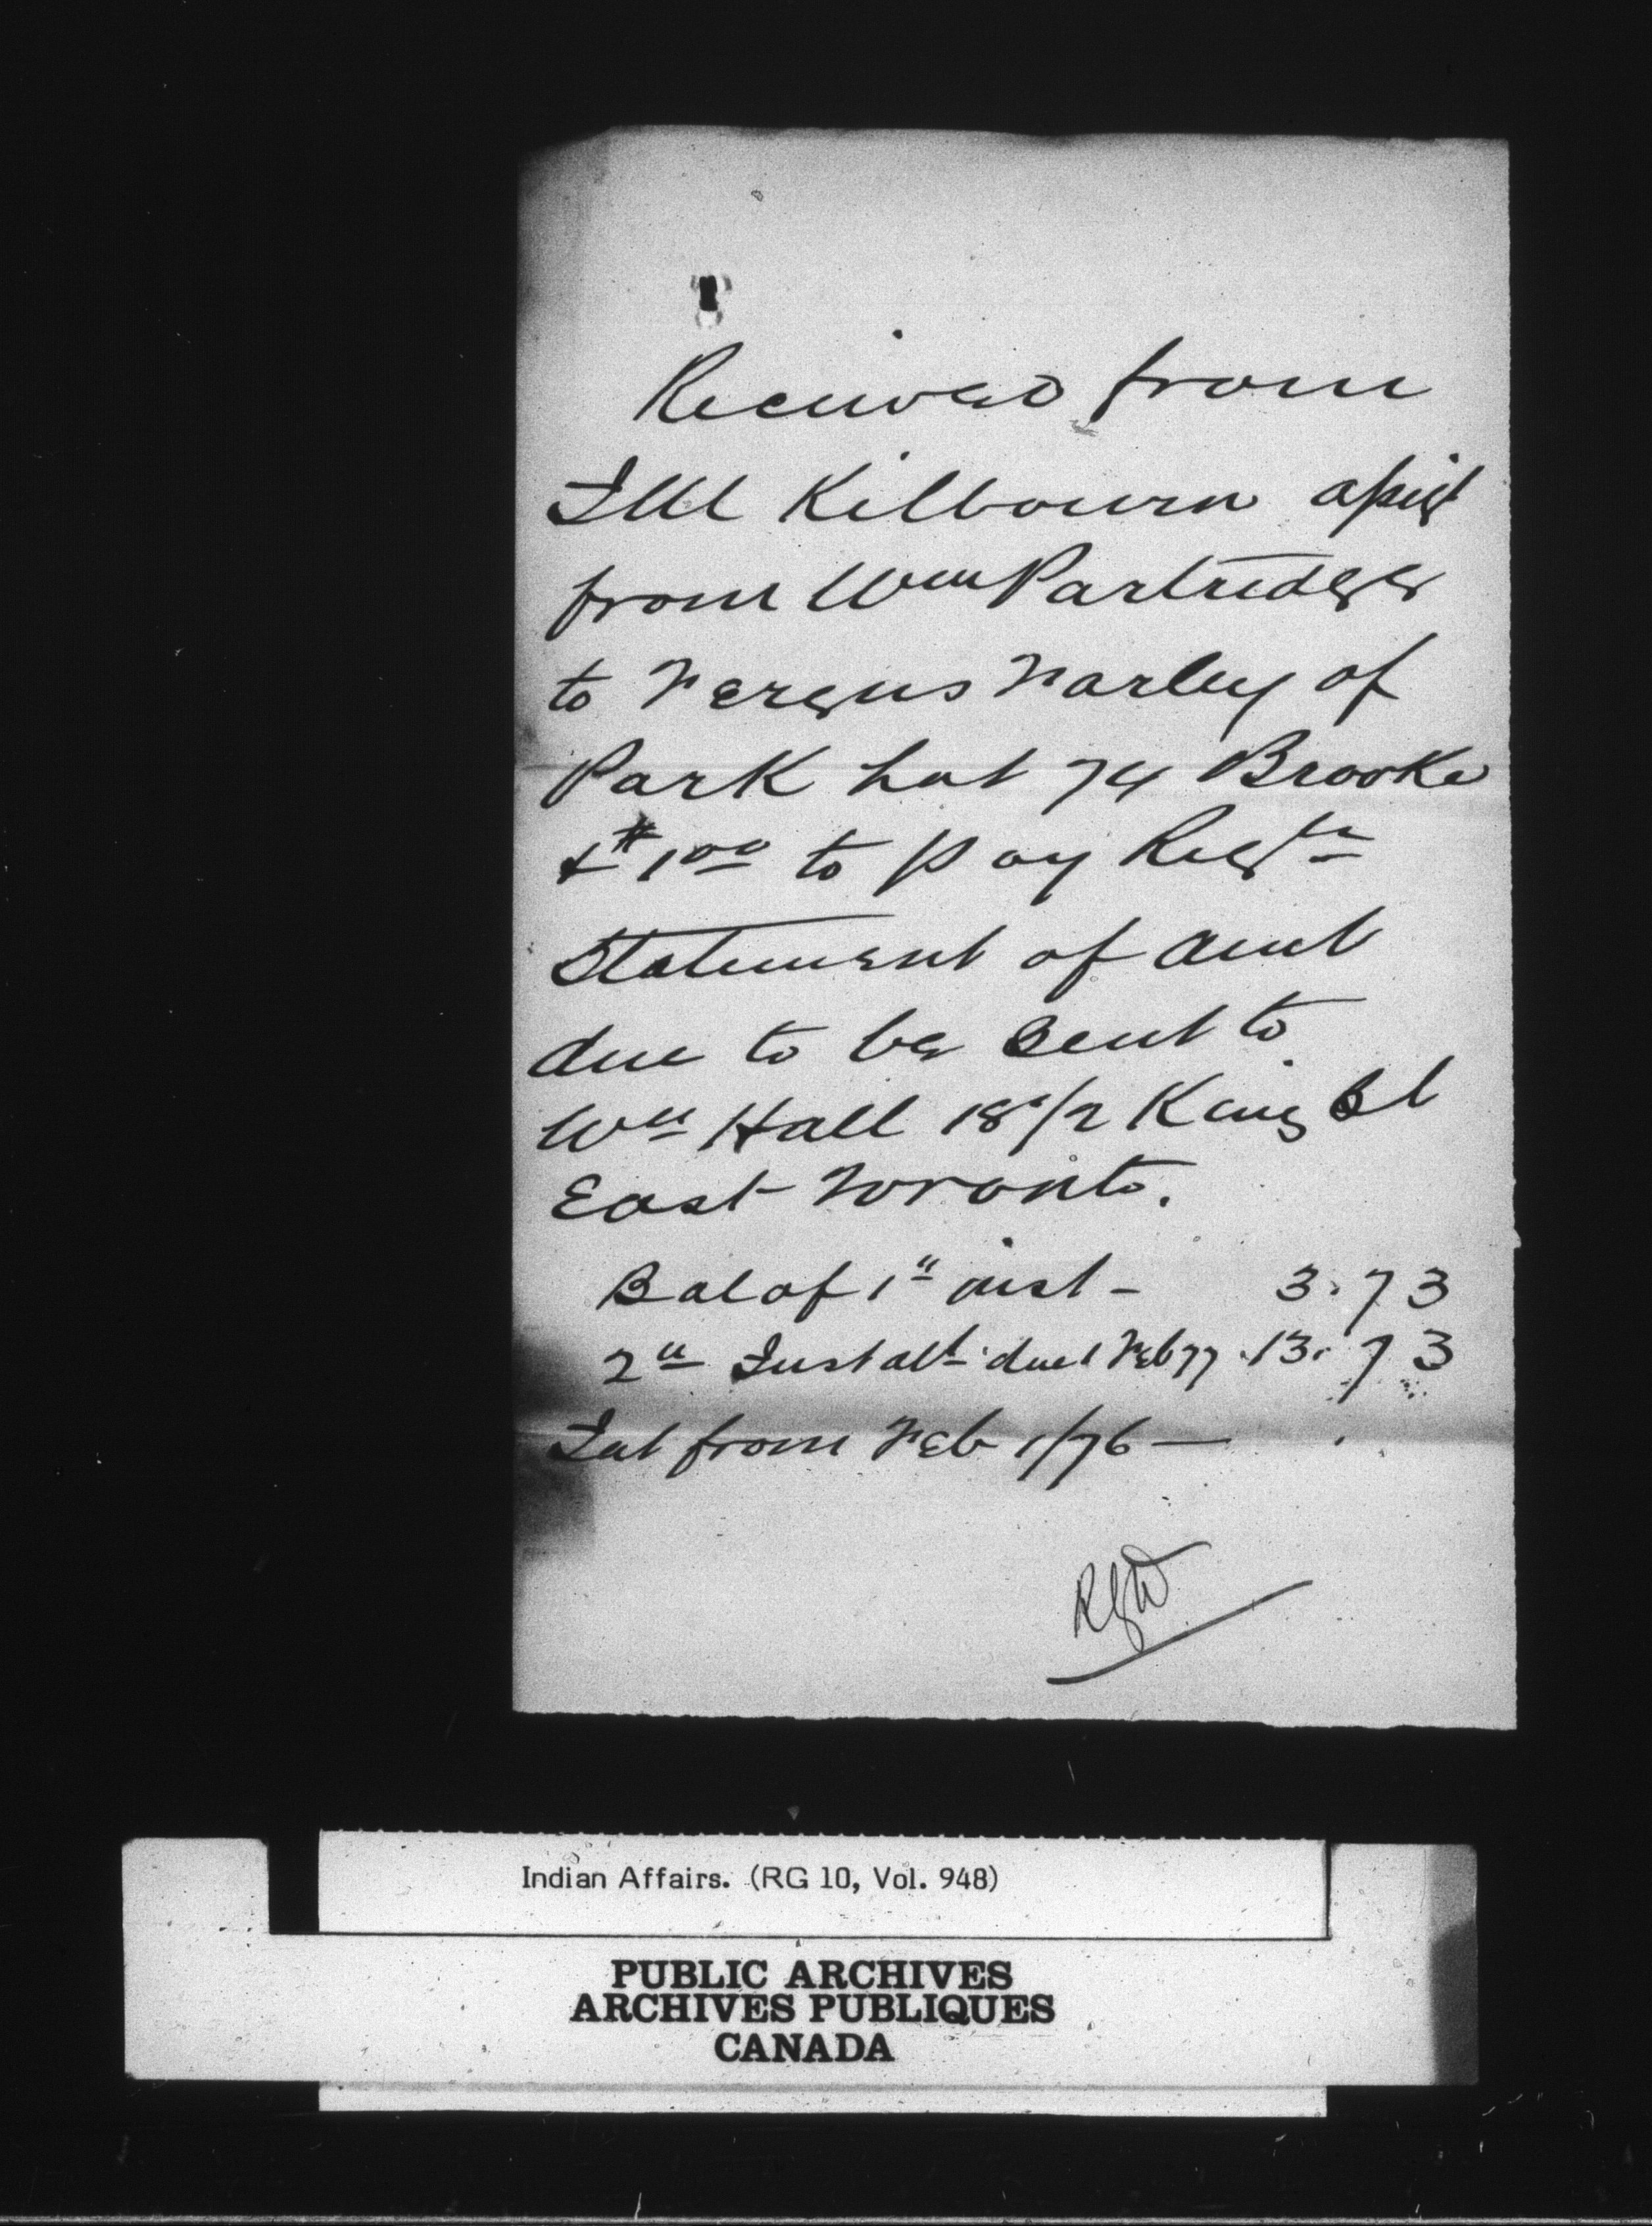 Received from
Kilbourn assigt
from Wm Partridge
to Fergus Farley of
Park Lot 74 Brooke
& $1 00 to pay Regtn
Statement of amt
due to be sent to
Wm Hall 18 1/2 King St
East Toronto.
Bal of 1st inst - 3.73
2d Instalt due 1 Feb 77 13.73
Int from Feb 1/76 —
Indian Affairs. (RG 10, Vol. 948)
PUBLIC ARCHIVES
ARCHIVES PUBLIQUES
CANADA